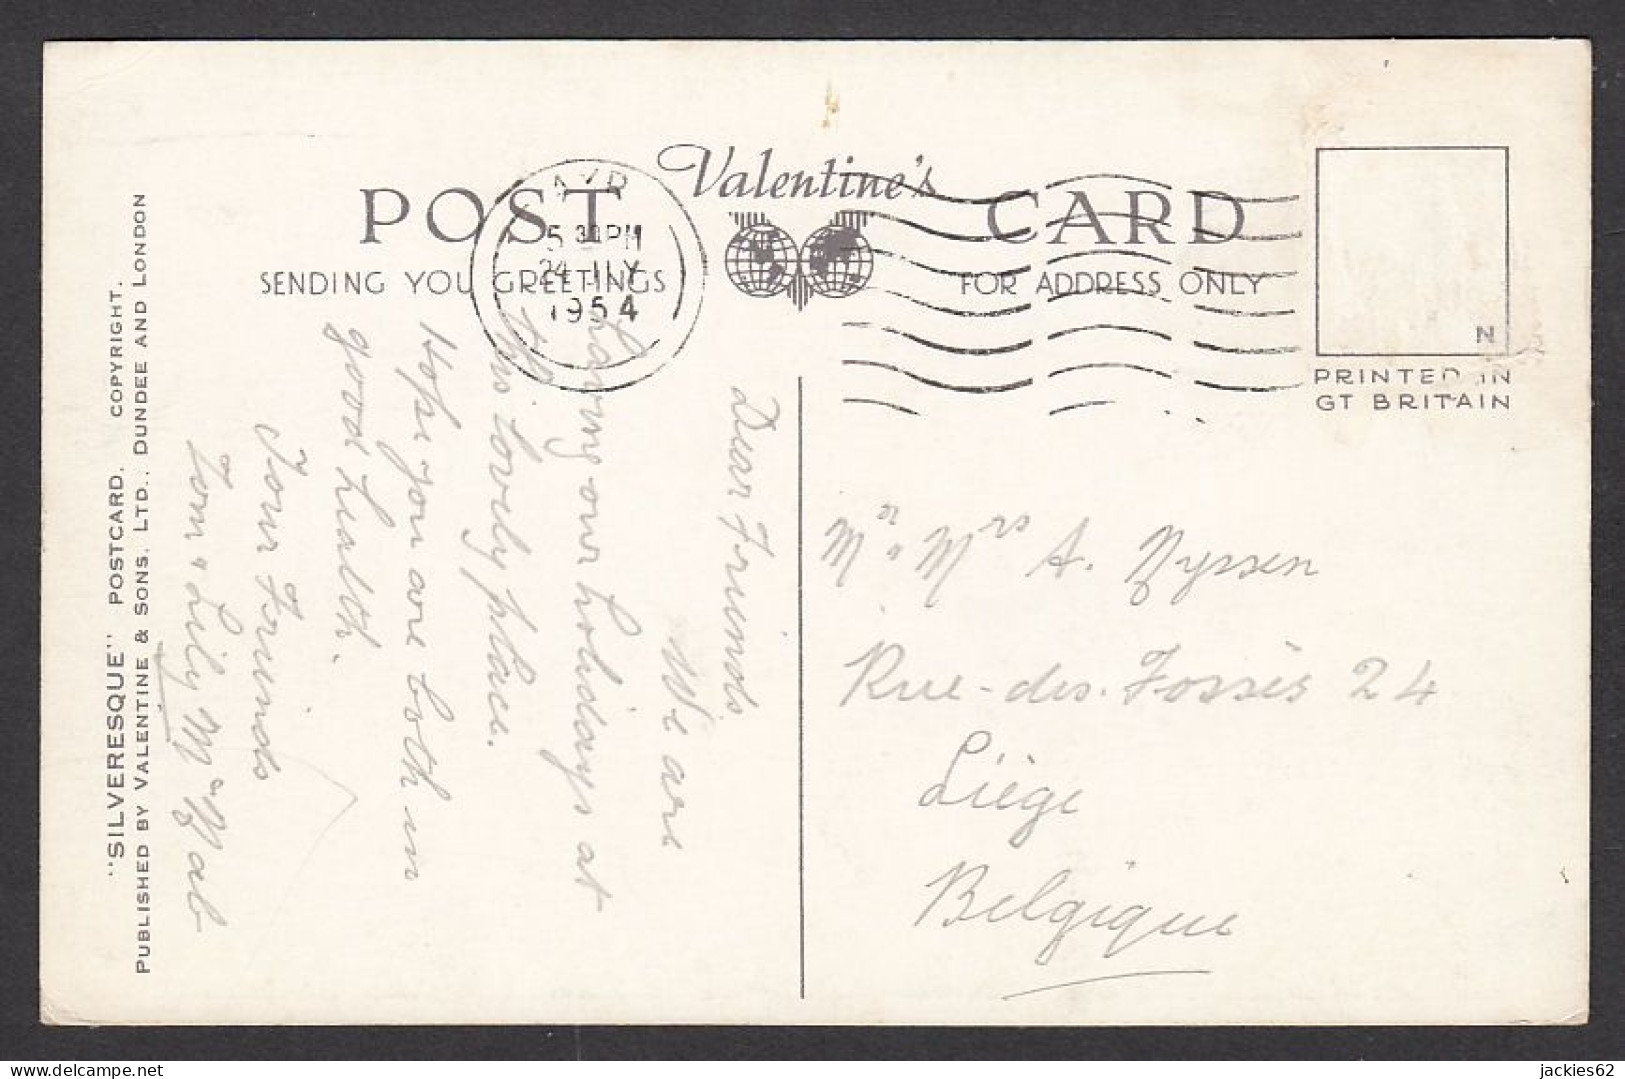 Valentine's
POST CARD
SENDING YOU GREETINGS
FOR ADDRESS ONLY
AYR
5 30 PM
24 JLY
1954
N
PRINTED IN
GT BRITAIN
"SILVERESQUE" POSTCARD. COPYRIGHT.
PUBLISHED BY VALENTINE & SONS, LTD., DUNDEE AND LONDON
Dear Friends
We are
having our holidays at
this lovely place.
Hope you are both in
good health.
Your Friends
Tom & Lily McNab
Mr & Mrs A. Nyssen
Rue-des-Fossés 24
Liège
Belgique
jackies62